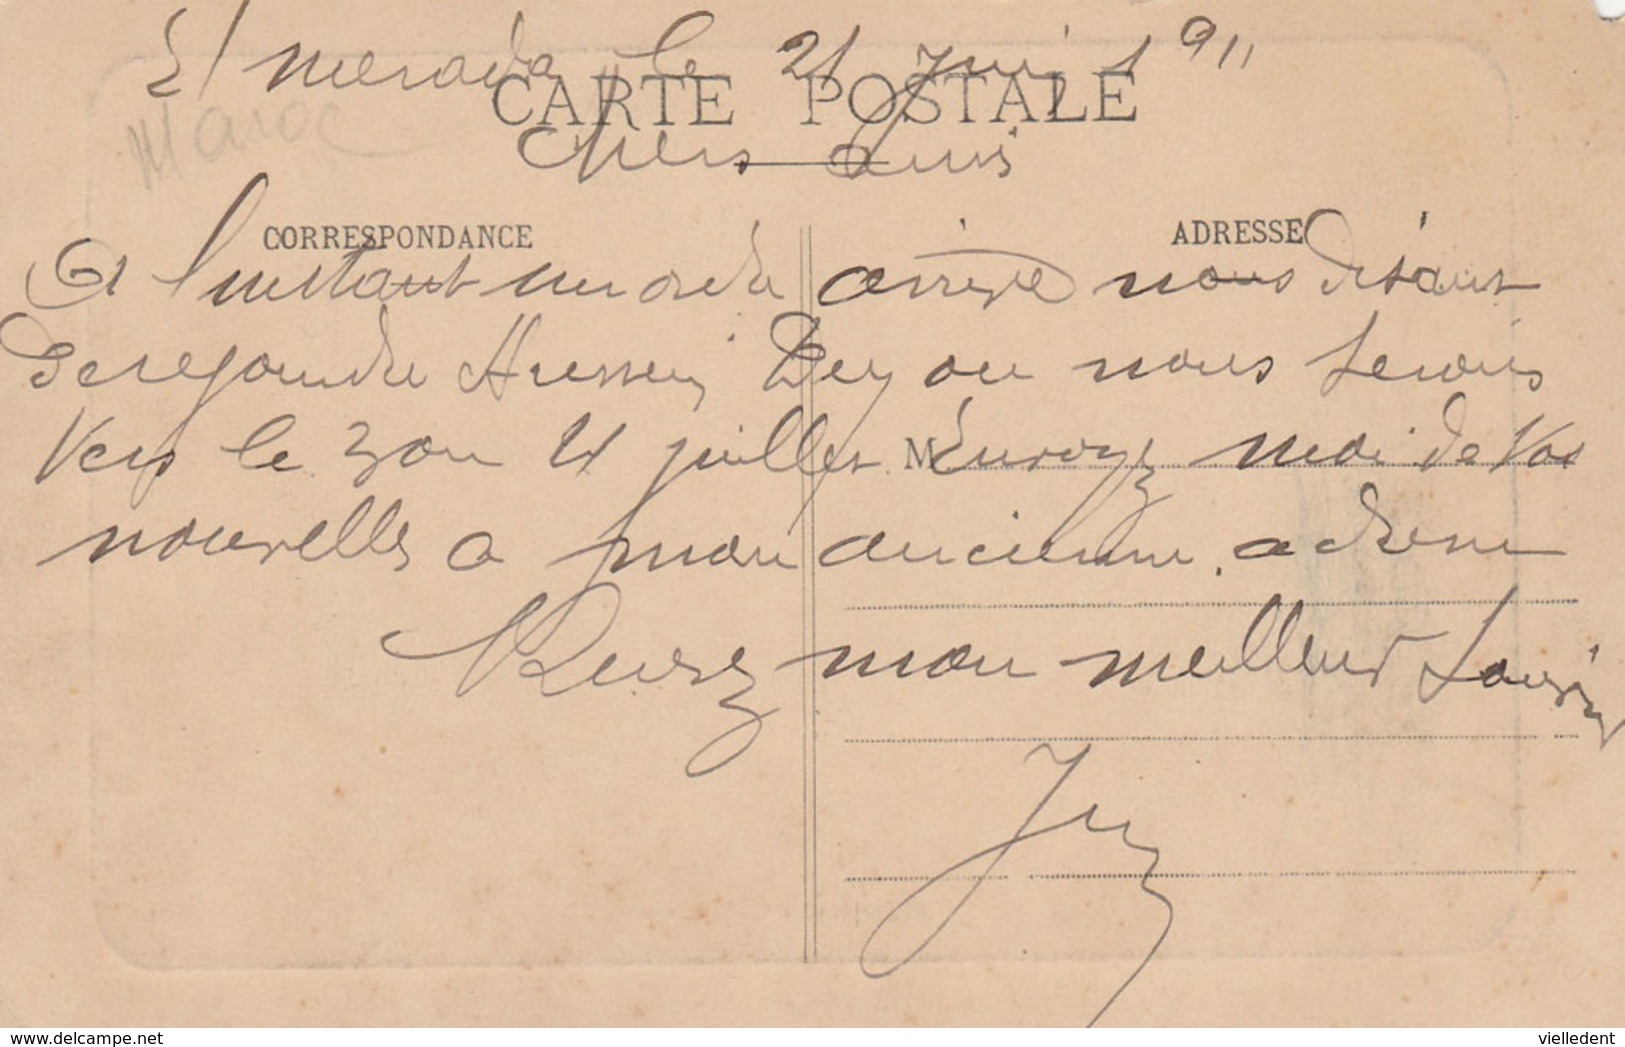 El merada le 21 Juin 1911
Maroc
CARTE POSTALE
Chers amis
CORRESPONDANCE
ADRESSE
A l'instant un ordre arrive nous disant
de rejoindre Hussein Dey ou nous serons
Vers le 3 ou 4 juillet Envoyez moi de vos
M
nouvelles a mon ancienne adresse
Recevez mon meilleur Souvenir
delcampe.net
vielledent